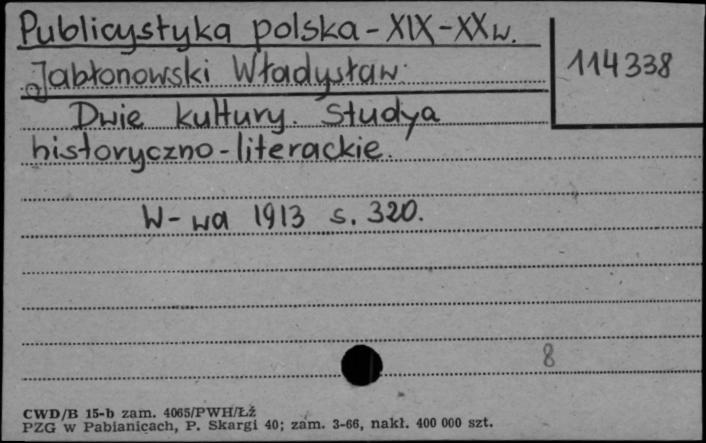 Publicystyka polska - XIX-XX w.
114338
Jabłonowski Władysław
Dwie kultury. Studya
historyczno-literackie.
W-wa 1913 s. 320.
8
CWD/B 15-b zam. 4065/PWH/Łź
PZG w Pabianicach, P. Skargi 40; zam. 3-66, nakł. 400 000 szt.